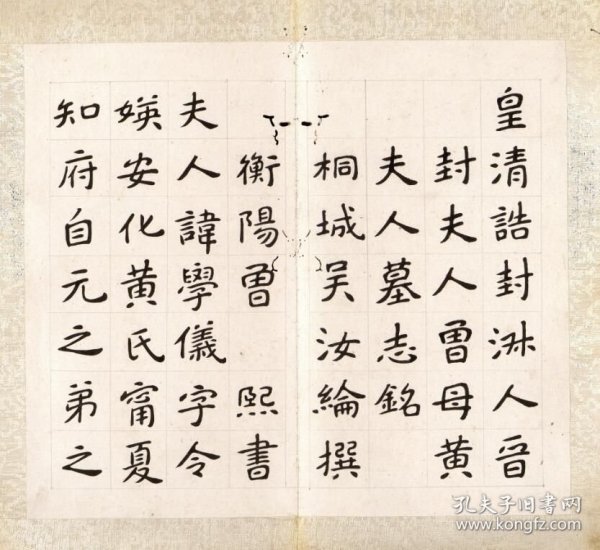 皇清誥封淑人晉
封夫人曾母黃
夫人墓志銘
桐城吴汝綸撰
衡陽曾熙書
夫人諱學儀字令
媖安化黃氏甯夏
知府自元之弟之
孔夫子旧书网
www.kongfz.com